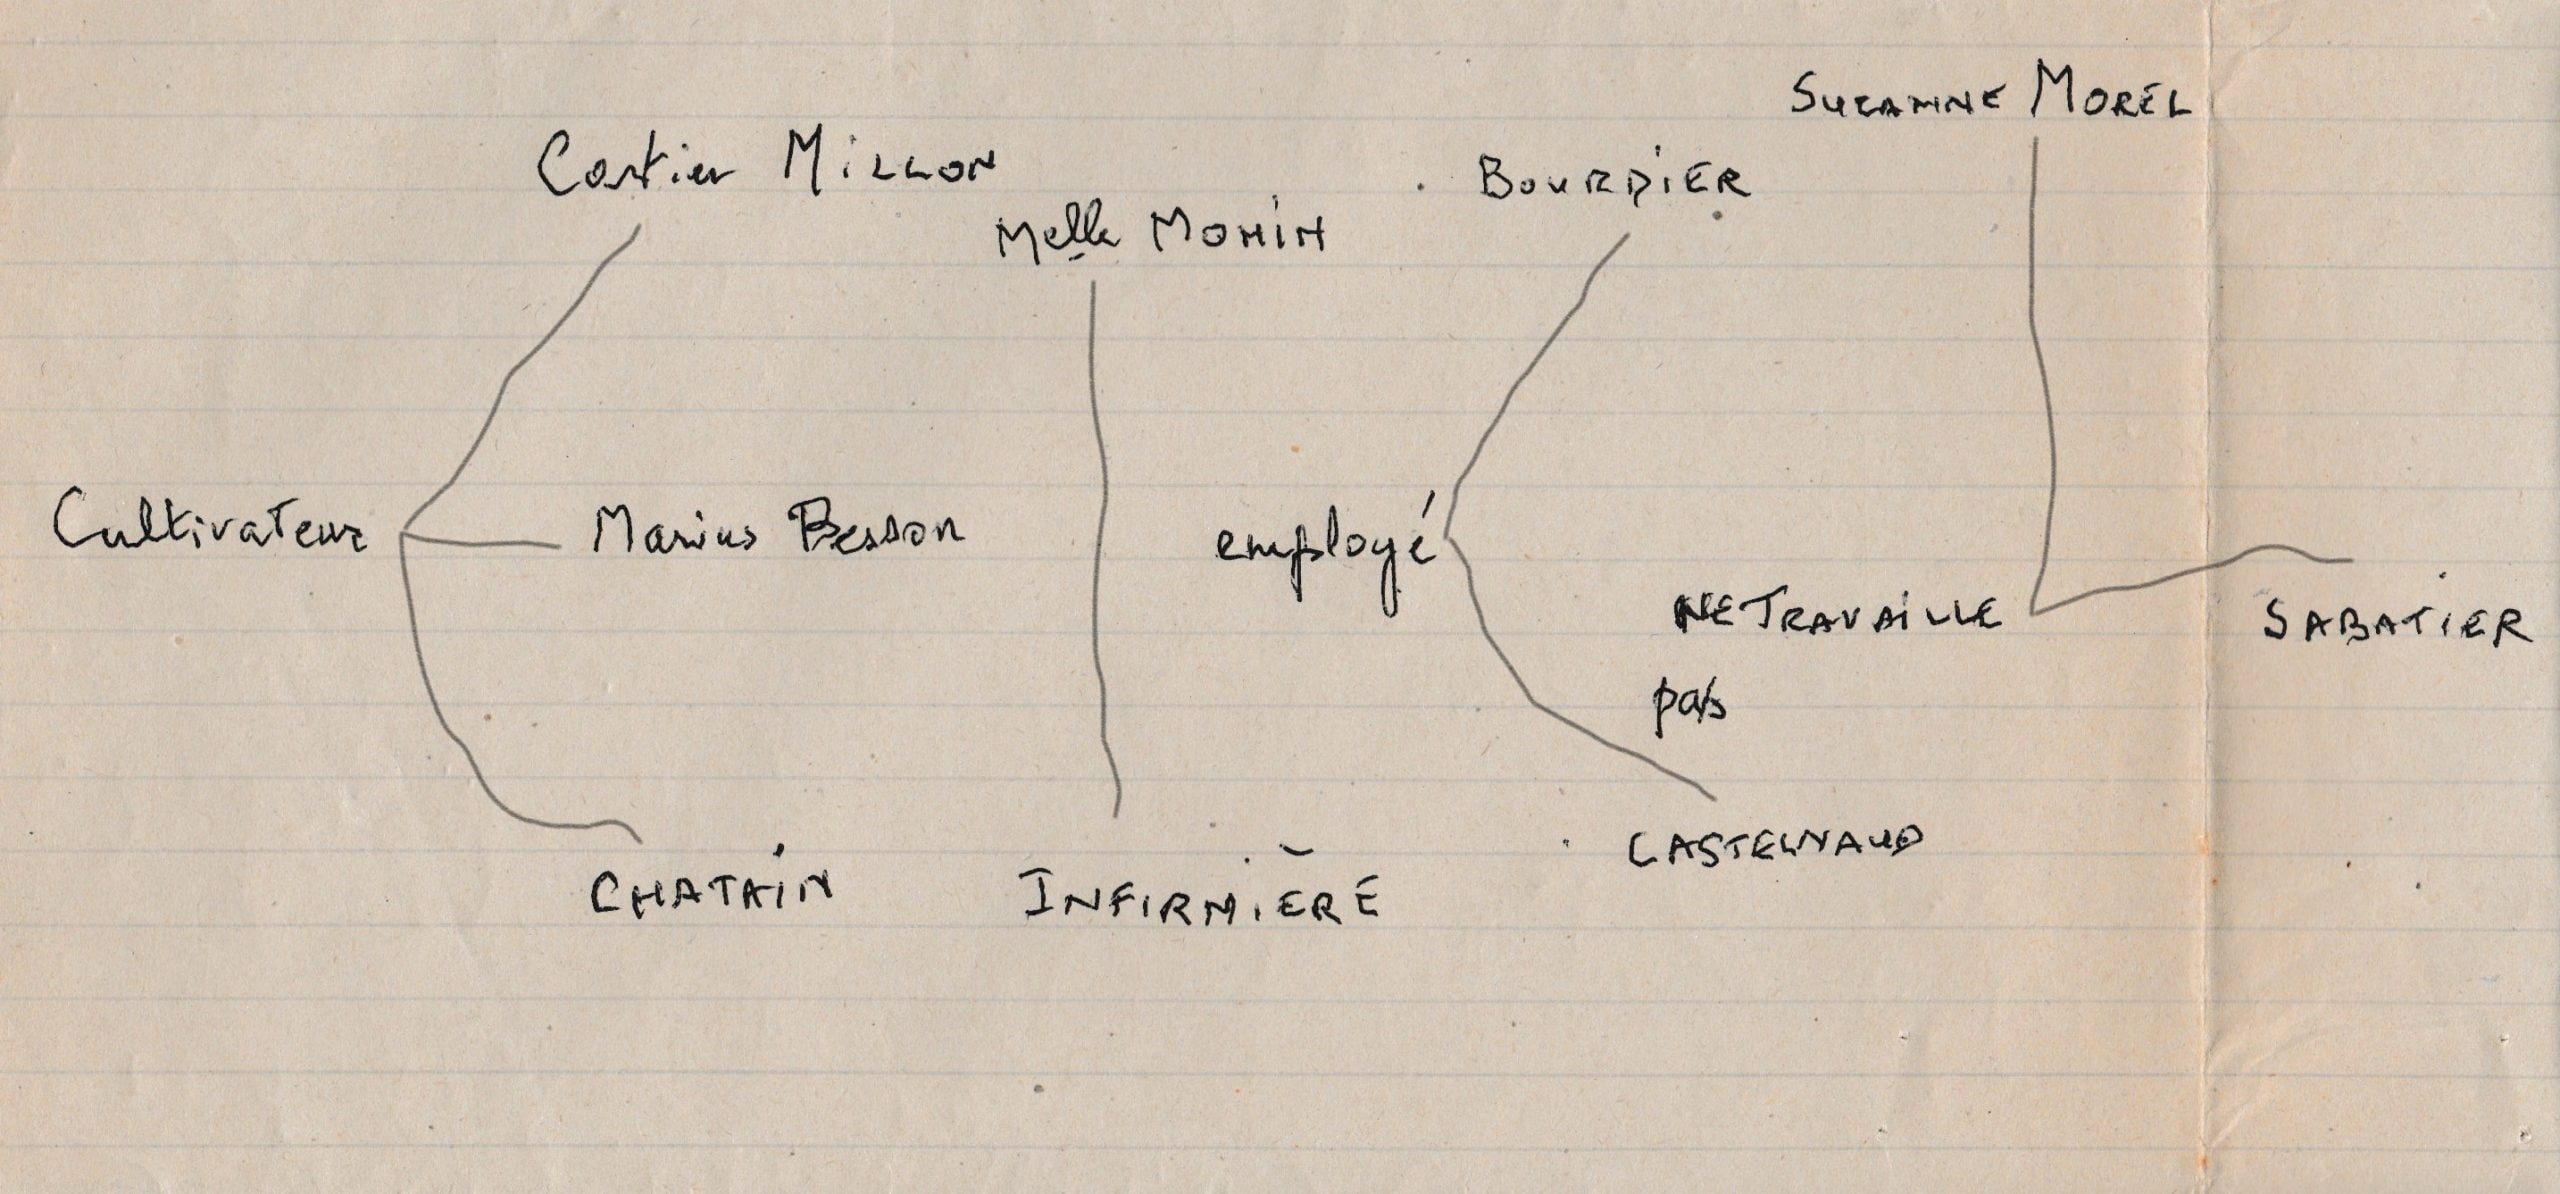 SUZANNE MOREL
Cartier MILLON
BOURDIER
Melle MONIN
Cultivateur
Marius Besson
employé
NE TRAVAILLE
pas
SABATIER
CASTELNAUD
CHATAIN
INFIRMIÈRE